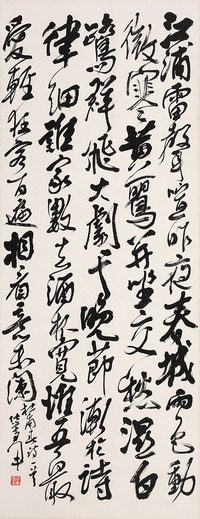 江浦雷聲喧昨夜春城雨色動
微寒黃鸎并坐交愁濕白
鷺群飛大劇干晚節漸於詩
律細誰家數去酒杯寬惟吾最
愛輕狂客百遍相看意未闌